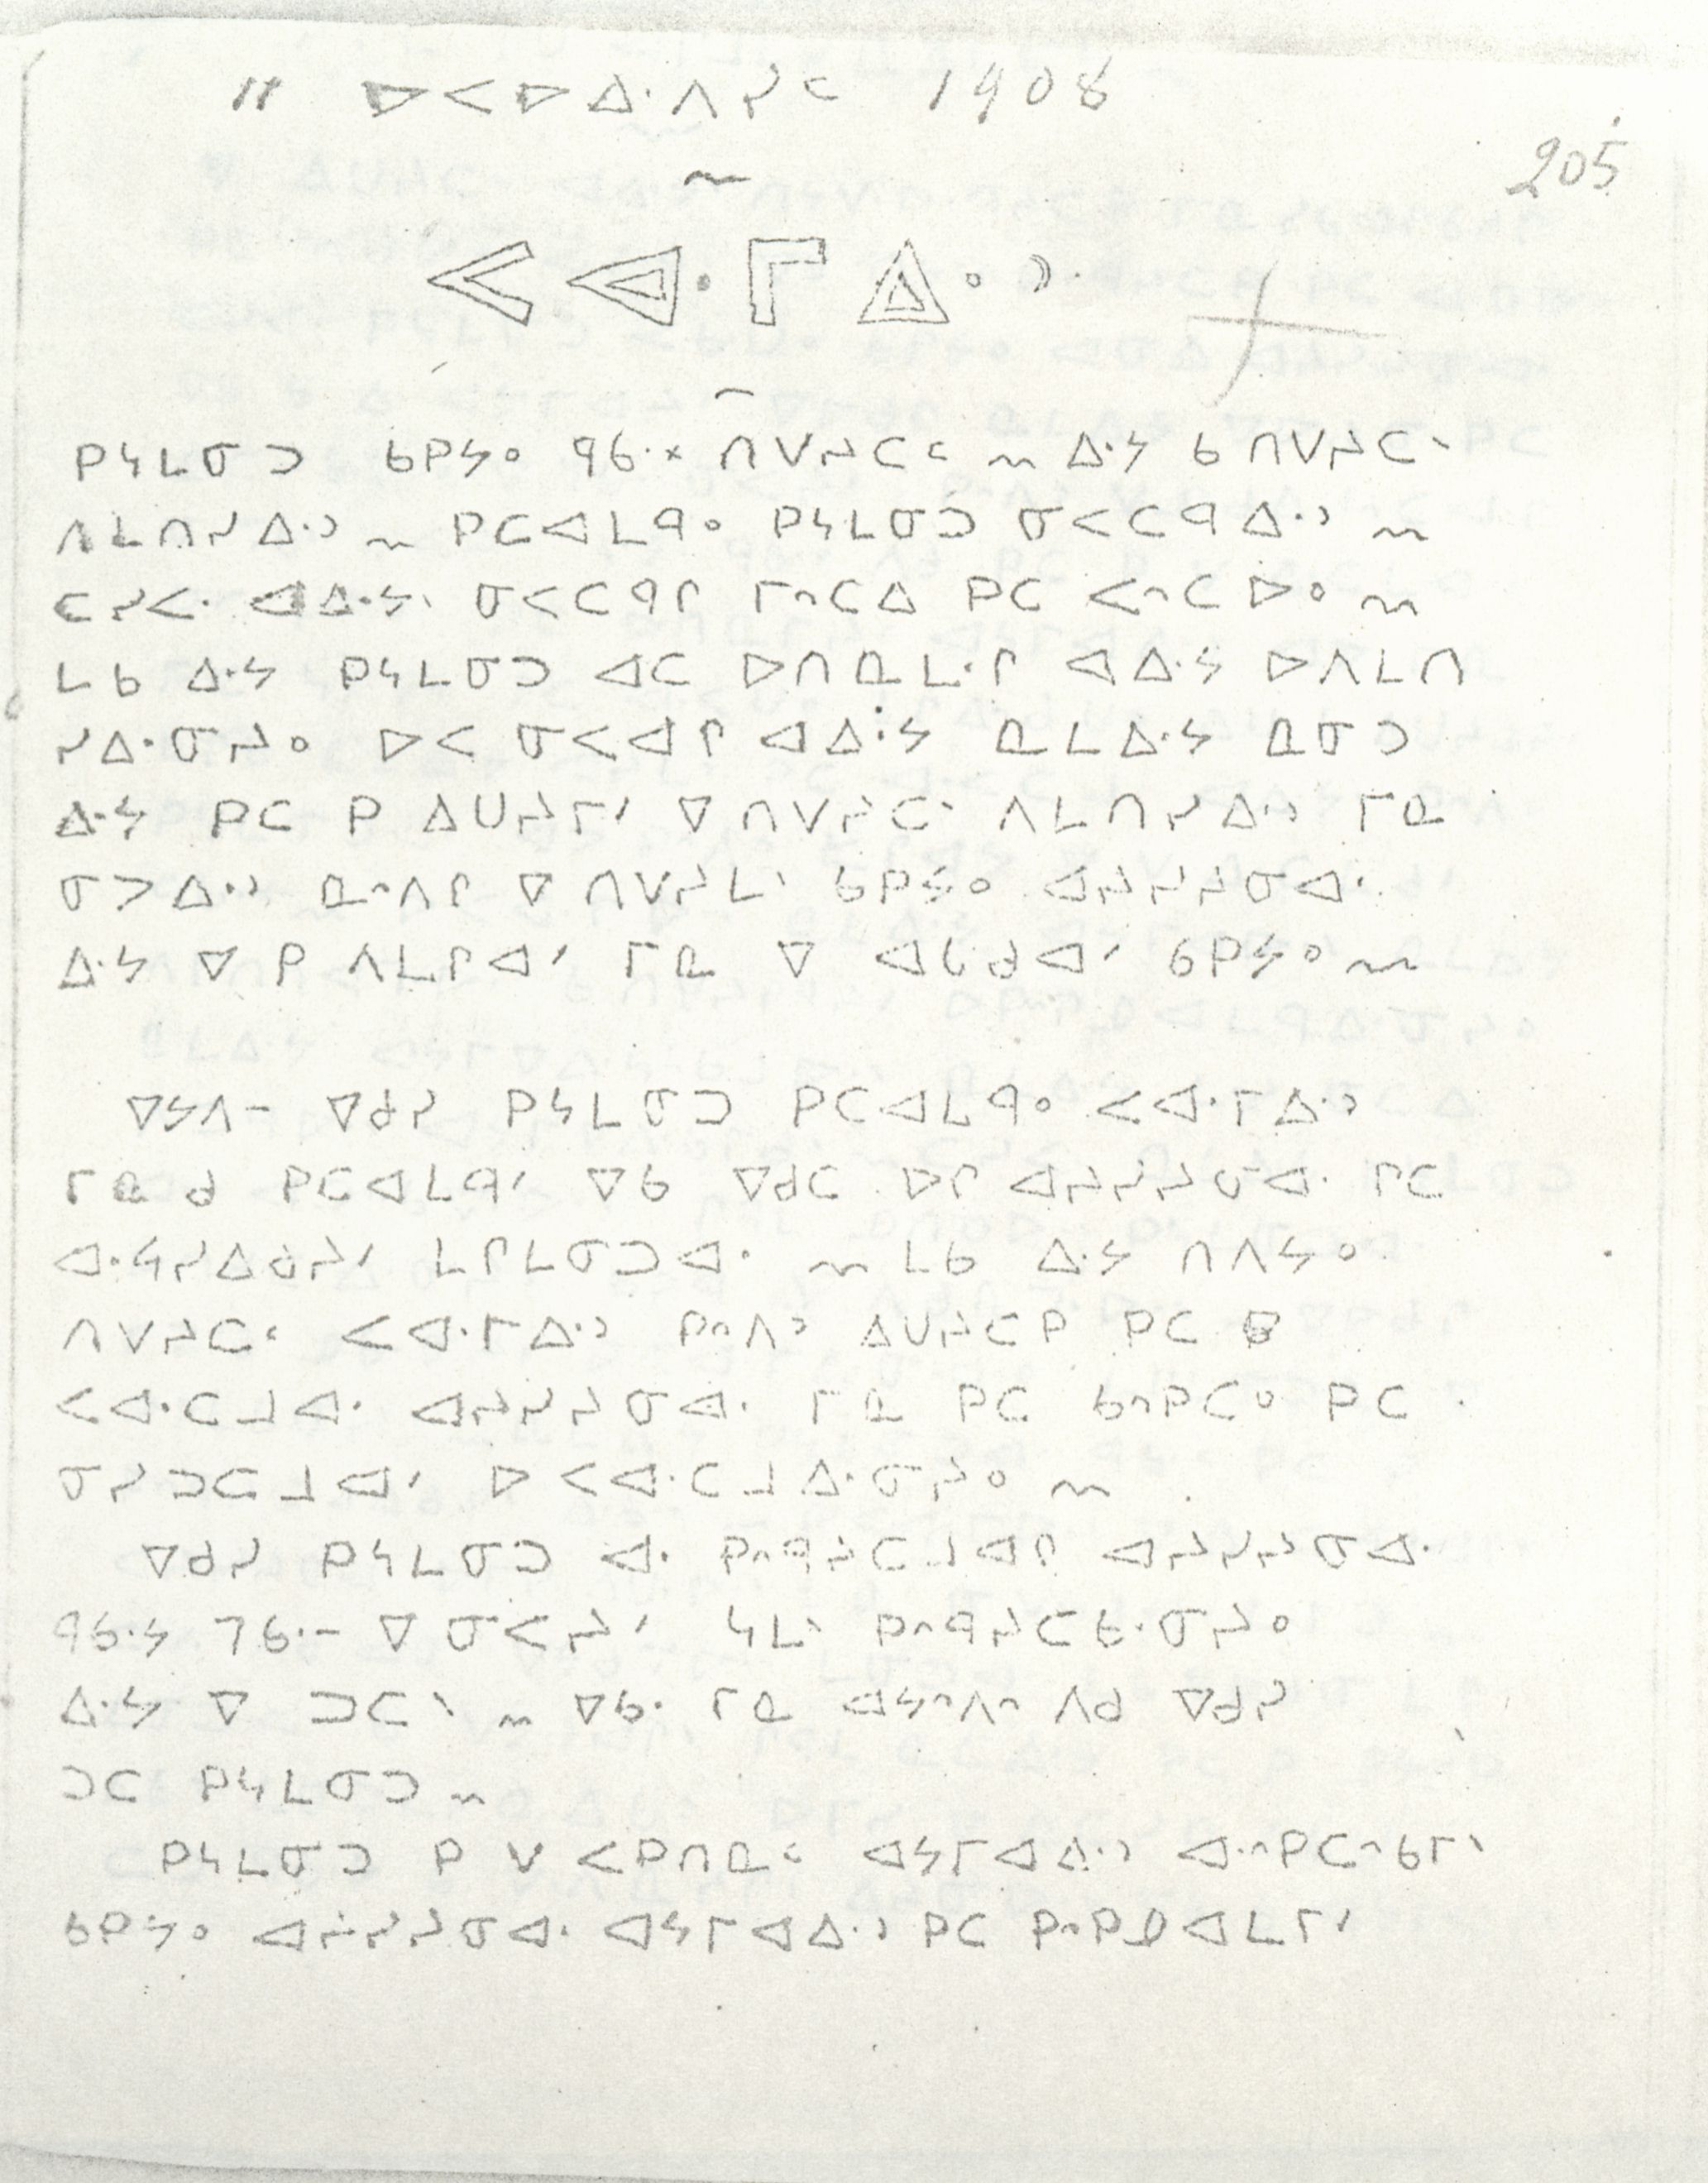 11 ᐅᐸᐅᐃᐧᐱᓯᑦ 1908
205
ᐸᐊᐧᒥᐃᐧᐤᐣ
ᑭᓴᒪᓂᑐ ᑲᑭᔭᐤ ᑫᑲᐧᕽ ᑎᐯᔨᑕᑦ ᐃᐧᔭ ᑲ ᑎᐯᔨᑕᐠ
ᐱᒪᑎᓯᐃᐧᐣ ᑭᑕᐊᒪᑫᐤ ᑭᓴᒪᓂᑐ ᓂᐸᑕᑫᐃᐧᐣ
ᑕᓯᐸᐧ ᐊᐃᐧᔭᐠ ᓂᐸᑕᑫᒋ ᒥᐢᑕᐃ ᑭᑕ ᐸᐢᑕᐅᐤ
ᒪᑲ ᐃᐧᔭ ᑭᓴᒪᓂᑐ ᐊᑕ ᐅᑎᓇᒪᐧᒋ ᐊᐃᐧᔭ ᐅᐱᒪᑎ
ᓯᐃᐧᓂᔨᐤ ᐅᐸ ᓂᐸᐊᒋ ᐊᐃᐧᔭ ᓇᒪᐃᐧᔭ ᓇᓂᑐ
ᐃᐧᔭ ᑭᑕ ᑭ ᐃᑌᔨᒥᐟ ᐁ ᑎᐯᔨᑕᐠ ᐱᒪᑎᓯᐃᐧᐣ ᒥᓇ
ᓂᐳᐃᐧᐣ ᓇᐢᐱᒋ ᐁ ᑎᐯᔨᒪᐟ ᑲᑭᔭᐤ ᐊᔨᓯᔨᓂᐊᐧ
ᐃᐧᔭ ᐁ ᑭ ᐱᒪᒋᐊᐟ ᒥᓇ ᐁ ᐊᔭᑯᐊᐟ ᑲᑭᔭᐤ
ᐁᔭᐱᐨ ᐁᑯᓯ ᑭᓴᒪᓂᑐ ᑭᑕᐊᒪᑫᐤ ᐸᐊᐧᒥᐃᐧᐣ
ᒥᓇ ᑯ ᑭᑕᐊᒪᑫᐟ ᐁᑲ ᐁᑯᑕ ᐅᒋ ᐊᔨᓯᔨᓂᐊᐧ ᒋᑕ
ᐊᐧᓴᓯᐃᑯᔨᐟ ᒪᒋᒪᓂᑐᐊᐧ ᒪᑲ ᐃᐧᔭ ᑎᐱᔭᐤ
ᑎᐯᔨᑕᑦ ᐸᐊᐧᒥᐃᐧᐣ ᑭᐢᐱᐣ ᐃᑌᔨᑕᑭ ᑭᑕ
ᐸᐊᐧᑕᒧᐊᐧ ᐊᔨᓯᔨᓂᐊᐧ ᒥᓇ ᑭᑕ ᑲᐢᑭᑕᐤ ᑭᑕ
ᓂᓯᑐᑕᒧᐊᐟ ᐅ ᐸᐊᐧᑕᒧᐃᐧᓂᔨᐤ
ᐁᑯᓯ ᑭᓴᒪᓂᑐ ᐊᐧ ᑭᐢᑫᔨᑕᒧᐊᒋ ᐊᔨᓯᔨᓂᐊᐧ
ᑫᑲᐧᔭ ᒣᑲᐧᐨ ᐁ ᓂᐸᔨᐟ ᓴᒪᐠ ᑭᐢᑫᔨᑕᑲᐧᓂᔨᐤ
ᐃᐧᔭ ᐁ ᑐᑕᐠ ᐁᑲᐧ ᒥᓇ ᐊᔭᐢᐱᐢ ᐱᑯ ᐁᑯᓯ
ᑐᑕ ᑭᓴᒪᓂᑐ
ᑭᓴᒪᓂᑐ ᑭ ᐯ ᐸᑭᑎᓇᑦ ᐊᔭᒥᐊᐃᐧᐣ ᐊᐧᐢᑭᑕᐢᑲᒥᐠ
ᑲᑭᔭᐤ ᐊᔨᓯᔨᓂᐊᐧ ᐊᔭᒥᐊᐃᐧᐣ ᑭᑕ